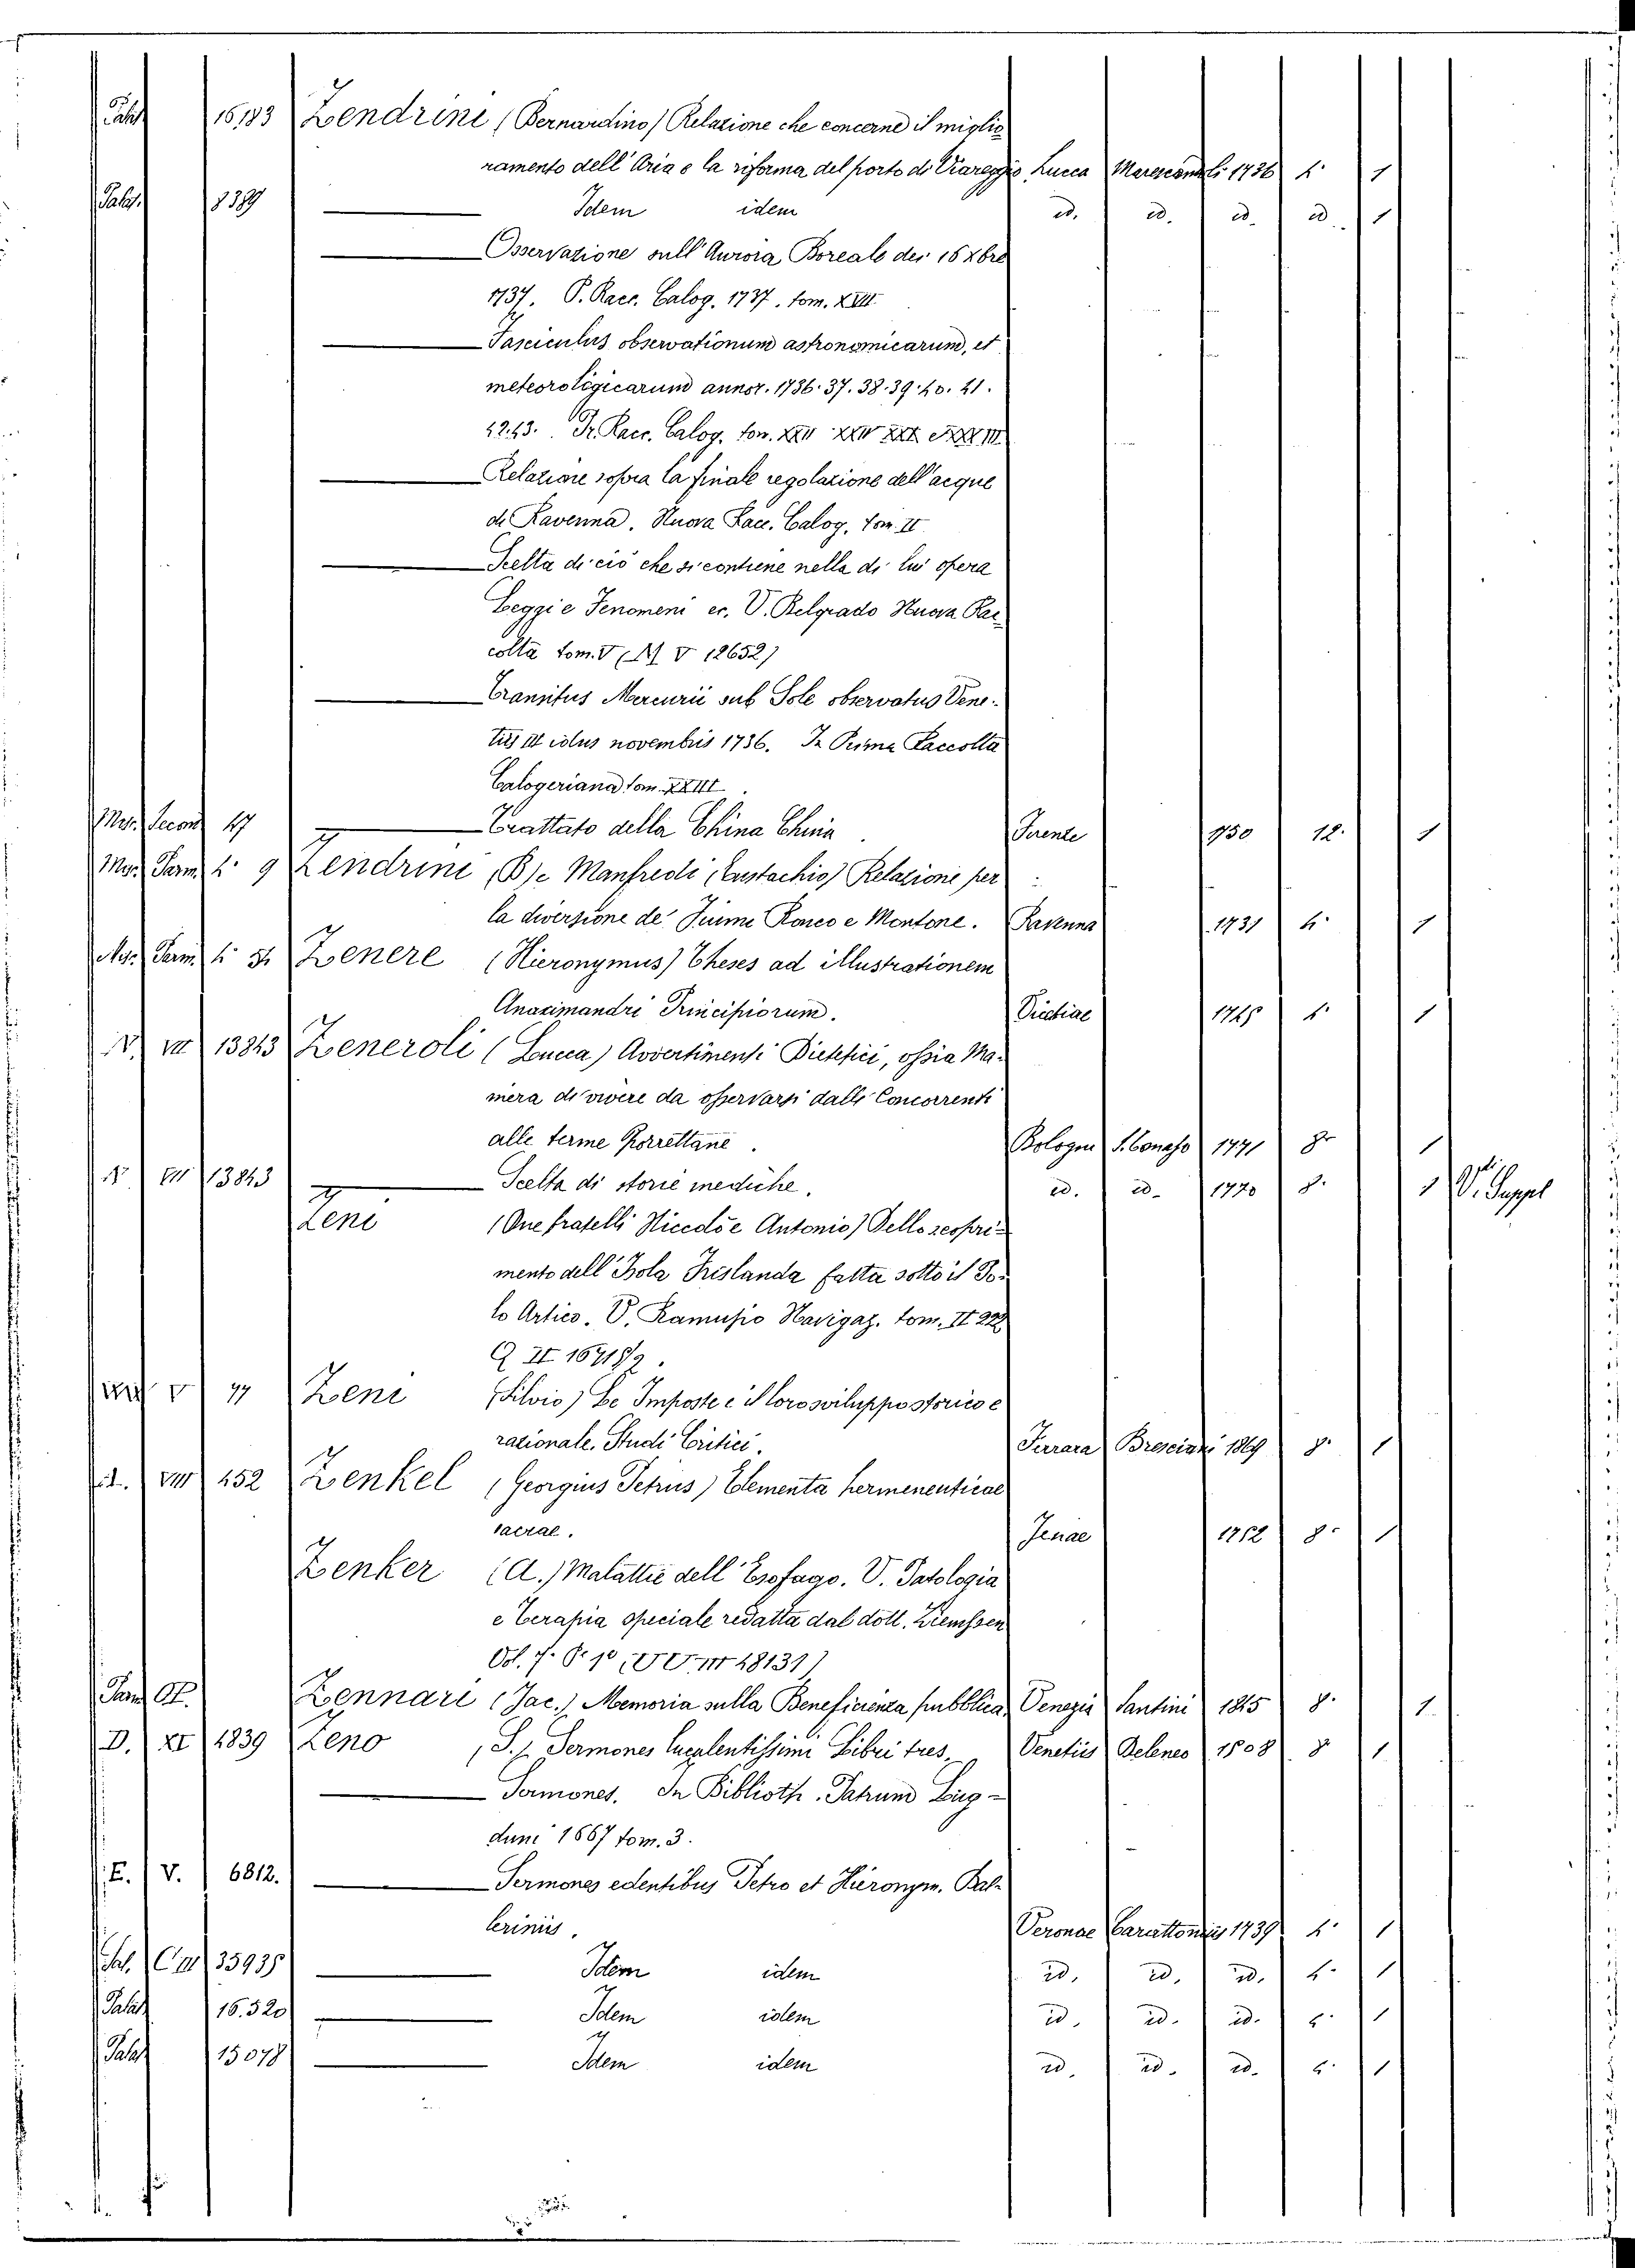 16183 Zendrini (Bernardino) Relazione che concerne il miglio
ramento dell'Aria e la riforma del porto di Viareggio Lucca Marescandoli 1736 4. 1
Palat. 1389 Idem idem id. id. id. id. 1
Osservazione sull'Aurora Boreale dei 16 Xbre
1737. P. Racc. Calog. 1737. tom. XVII
Fasciculus observationum astronomicarum, et
meteorologicarum annor. 1736. 37. 38. 39. 40. 41.
42. 43. Pr. Racc. Calog. tom.
Relazione sopra la finale regolazione dell'acque
di Ravenna. Nuova Racc. Calog. tom. II
Scelta di ciò che si contiene nella di lui opera
Leggi e Fenomeni ec. V. Belgrado Nuova Rac
colta tom. V ( V 12652)
Transitus Mercurii sub Sole observatus Vene-
tiis III idus novembris 1736. In Prima Raccolta
Calogeriana tom. XXIII
Mss. Second 47 Trattato della China China Firenze 1750 12. 1
9 Zendrini (B) e Manfredi (Eustachio) Relazioni per
la diversione de' Fiumi Ronco e Montone. Ravenna 1731 4. 1
Zenere (Hieronymus) Theses ad illustrationem
Anaximandri Principiorum. 1
N. VII 13843 Zeneroli (Lucca) Avvertimenti Dietetici, ossia Ma-
niera di vivere da osservarsi dalli Concorrenti
alle terme Porrettane. Bologna 1771 8. 1
N. VII 13843 Scelta di storie mediche. id. id. 1770 8. 1 V. Suppl
Zeni (Due fratelli Nicolò e Antonio) Dello scopri-
mento dell'Isola Frislanda fatta sotto il Po-
lo Artico. V. Ramusio Navigaz. tom. II 222
Q II 16718/2.
V 77 Zeni (Silvio) Le Imposte e il loro sviluppo storico e
razionale. Studi Critici. Ferrara Bresciani 1869 8. 1
VIII 452 Zenkel (Georgius Petrus) Elementa hermeneuticae
sacrae. Jenae 1752 8. 1
Zenker (A.) Malattie dell'Esofago. V. Patologia
e Terapia speciale redatta dal dott. Ziemssen
Vol. 7. P. 1º (UU. III 48131)
Zennari (Jac.) Memoria sulla Beneficienza pubblica Venezia Santini 1815 8. 1
D. XI 4839 Zeno (S.) Sermones luculentissimi Libri tres. Venetiis 1508 8 1
Sermones. In Biblioth. Patrum Lug-
duni 1667 tom. 3.
E. V. 6812. Sermones edentibus Petro et Hieronym. Bal-
leriniis. Veronae Carattoniis 1739 4. 1
35935 Idem idem id. id. id. 4. 1
Palat 16.520 Idem idem id. id. id. 4. 1
Palat 15078 Idem idem id. id. id. 4. 1